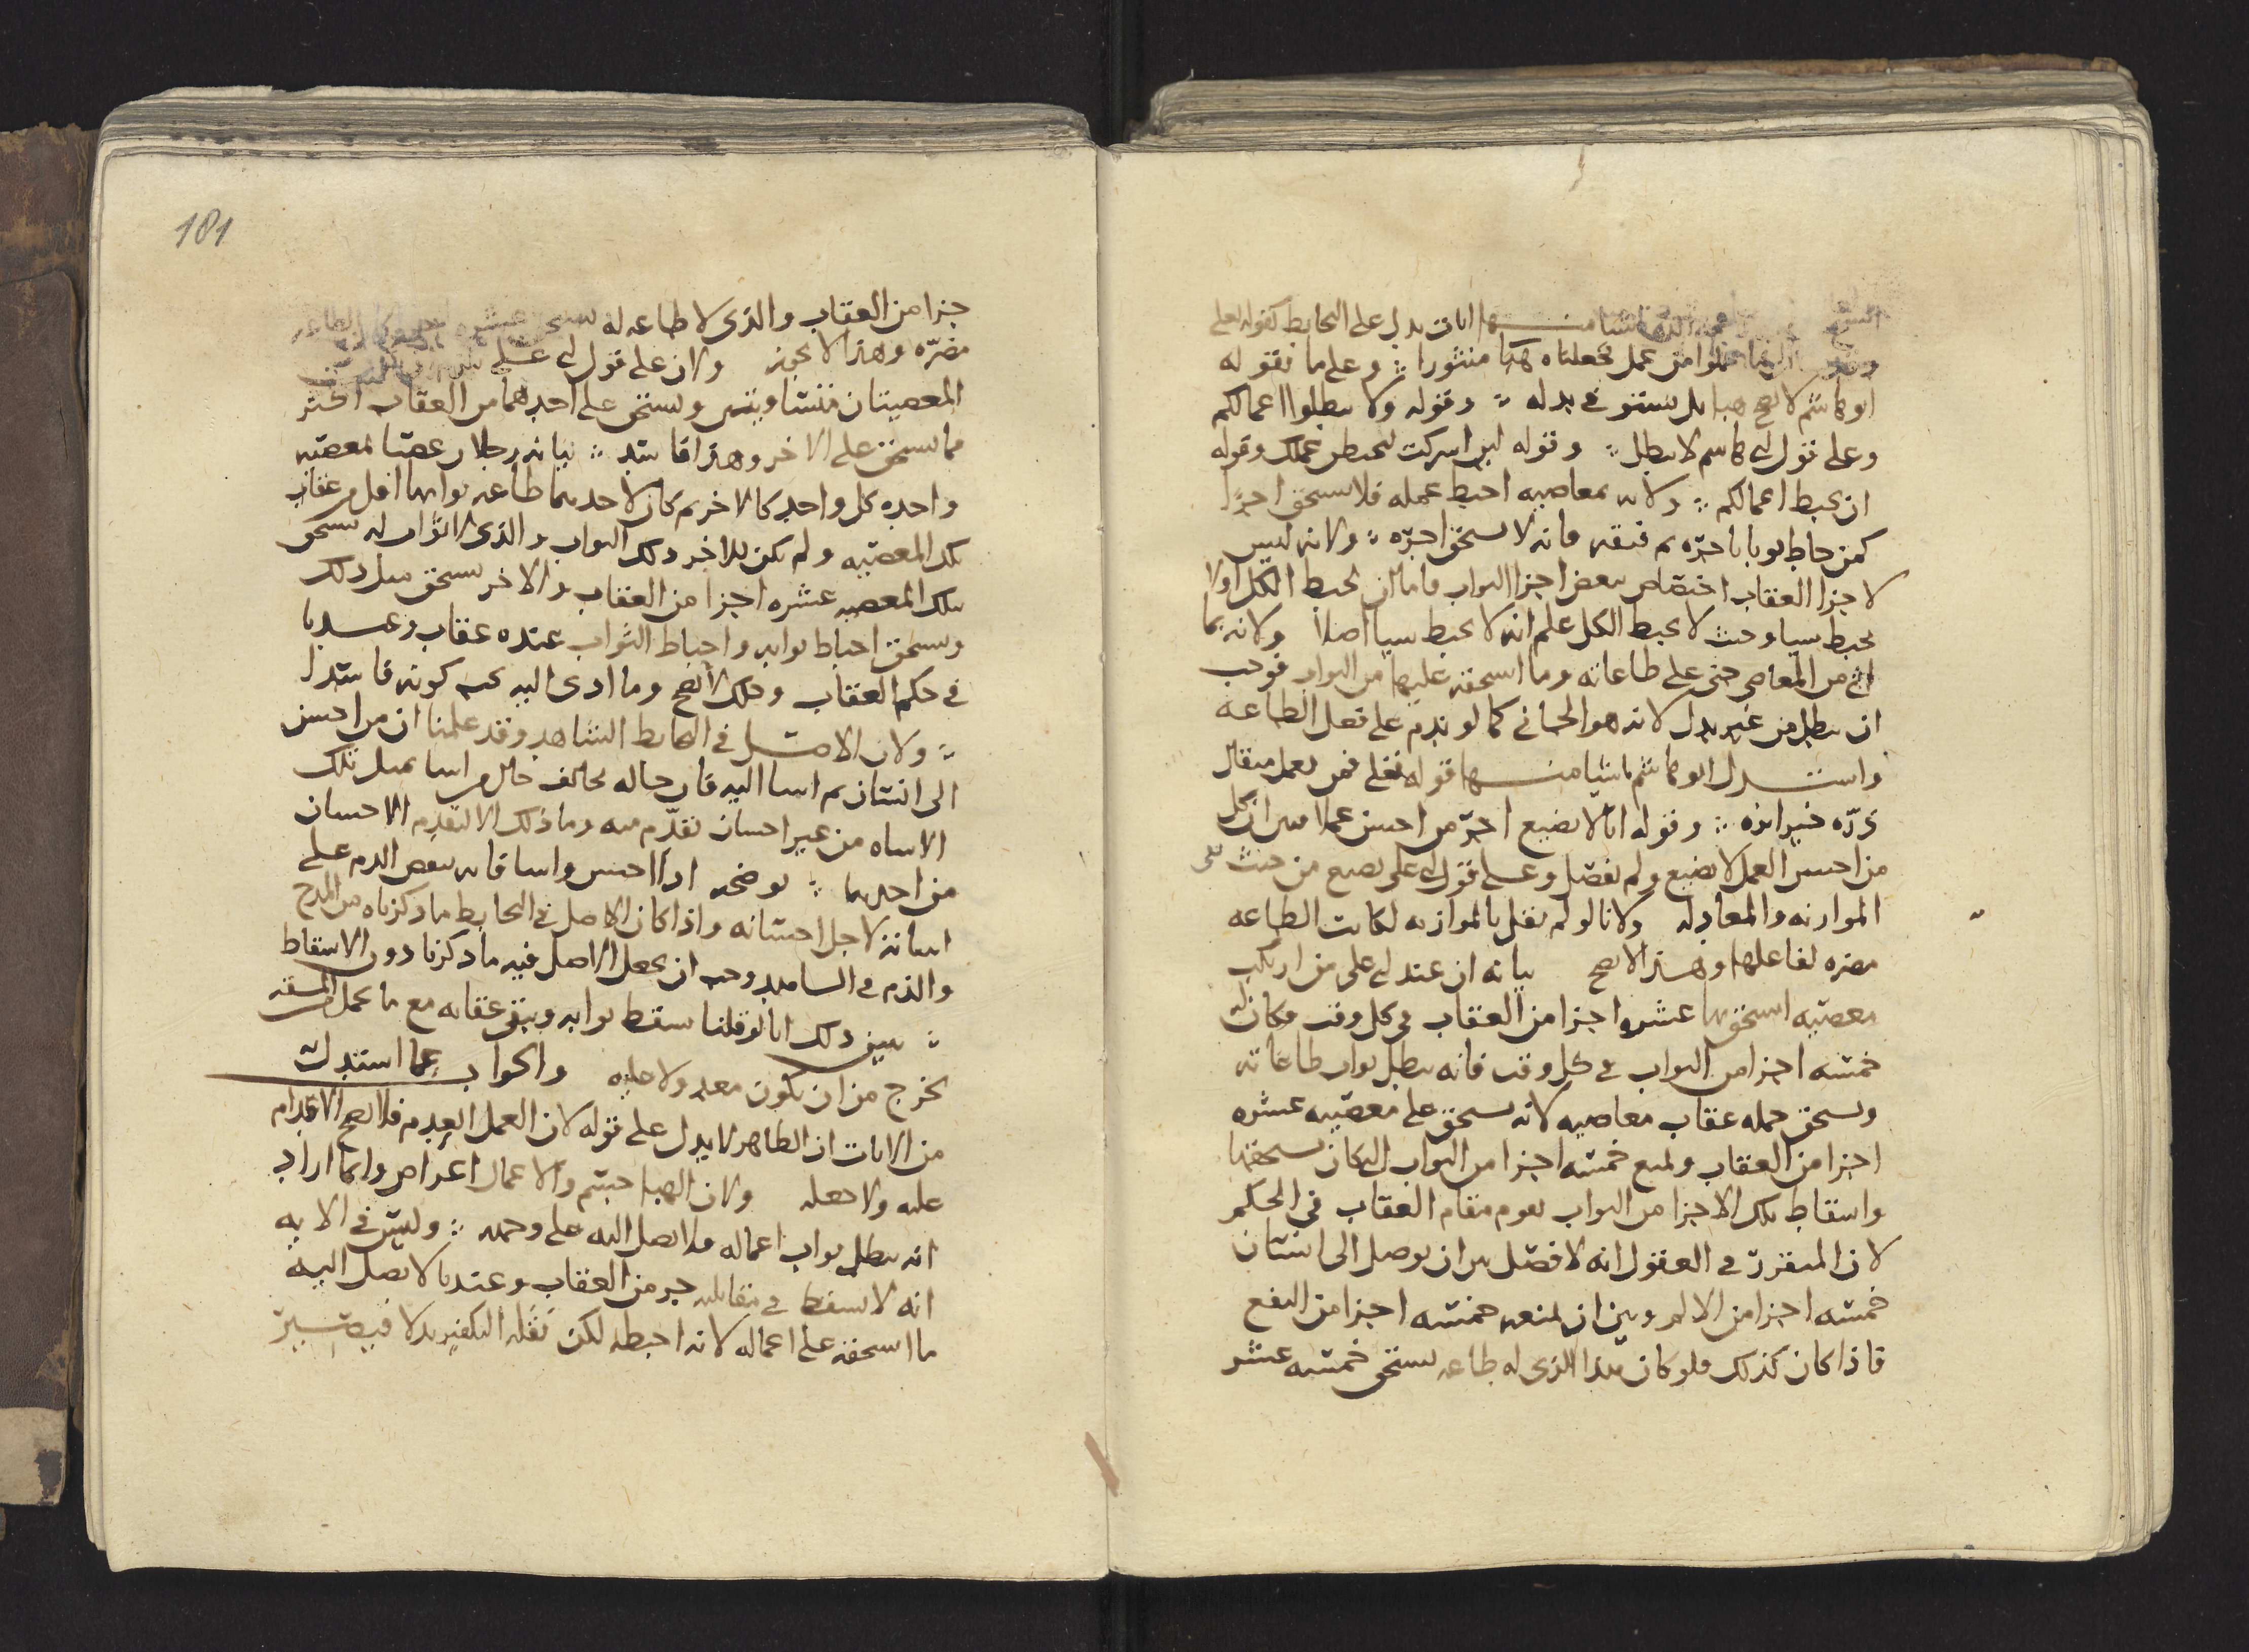 منها ايات يدل على التحابط كقوله تعلى
عملوا من عمل فجعلناه هبا منثورا ؞ وعلى ما يقوله
ابو هاشم لا يصح هبا بل يستوفي بدله ؞ وقوله ولا تبطلوا اعمالكم
وعلى قول ابي هاشم لا يبطل ؞ وقوله لين اشركت ليحبطن عملك وقوله
ان تحبط اعمالكم ؞ ولانه بمعاصيه احبط عمله فلا يستحق اجرا
كمن خاط ثوبا باجره ثم فتقه فانه لا يستحق اجره ؞ ولانه ليس
لاجزا العقاب اختصاص ببعض اجزا الثواب فاما ان يحبط الكل اولا
يحبط شيا وحيث لا يحبط الكل علم انه لا يحبط شيا اصلا ولانه بما
اتى من المعاصي جنى على طاعاته وما استحقه عليها من الثواب فوجب
ان يبطل من غير بدل لانه هو الجاني كما لو ندم على فعل الطاعه
واستدل ابو هاشم باشيا منها قوله تعلى فمن يعمل مثقال
ذره خيرا يره ؞ وقوله انا لا نضيع اجر من احسن عملا فبين ان كل
من احسن العمل لا يضيع ولم يفصل وعلى قول ابي على يضيع من حيث نفى
الموازنه والمعادله ولانا لو لم نقل بالموازنه لكانت الطاعه
مضره لفاعلها وهذا لا يصح بيانه ان عند ابي على من ارتكب
معصيه استحق بها عشره اجزا من العقاب في كل وقت وكان له
خمسه اجزا من الثواب في كل وقت فانه يبطل ثواب طاعاته
ويستحق جمله عقاب معاصيه لانه يستحق على معصيته عشره
اجزا من العقاب ويمنع خمسه اجزا من الثواب التي كان يستحقها
واسقاط تلك الاجزا من الثواب يقوم مقام العقاب في الحكم
لان المتقرر في العقول انه لا فصل بين ان يوصل الى انسان
خمسه اجزا من الالم وبين ان يمنعه خمسه اجزا من النفع
فاذا كان كذلك فلو كان هذا الذي له طاعه يستحق خمسه عشر
181
جزا من العقاب والذى لا طاعه له يستحق عشره
مضره وهذا لا يجوز ولان على قول ابي على
المعصيتان متساويتين ويستحق على احدهما من العقاب اكثر
مما يستحق على الاخر وهذا فاسد ؞ بيانه رجلان عصيا بمعصيه
واحده كل واحد كالاخر ثم كان لاحدهما طاعه ثوابها اقل من عقاب
تلك المعصيه ولم يكن للاخر ذلك الثواب والذى الثواب له يستحق
بتلك المعصيه عشره اجزا من العقاب والاخر يستحق مثل ذلك
ويستحق احباط ثوابه واحباط الثواب عنده عقاب وعندنا
في حكم العقاب وذلك لا يصح وما ادى اليه يجب كونه فاسدا
؞ ولان الاصل في التحابط الشاهد وقد علمنا ان من احسن
الى انسان ثم اسا اليه فان حاله يخالف حال من اسا بمثل تلك
الاساه من غير احسان تقدم منه وما ذلك الا لتقدم الاحسان
من احدهما ؞ يوضحه اذا احسن واسا فانه ينقص الذم على
اسائته لاجل احسانه واذا كان الاصل في التحابط ما ذكرناه من المدح
والذم في الشاهد وجب ان يجعل الاصل فيه ما ذكرنا دون الاسقاط
؞ يبين ذلك انا لو قلنا سقط ثوابه وبقى عقابه مع ما تحمل من المشقه
يخرج من ان يكون معد ولا عليه والجواب عما استدلت
من الايات ان الظاهر لا يدل على قوله لان العمل العدم فلا يصح الاقدام
عليه ولا جعله ولان الهبا جسم والاعمال اعراض وانما اراد
انه يبطل ثواب اعماله فلا تصل اليه على وجهه ؞ وليس في الايه
انه لا يسقط في مقابلته جزء من العقاب وعندنا لا يصل اليه
ما استحقه على اعماله لانه احبطه لكن نقله التكفير بدلا فيصير